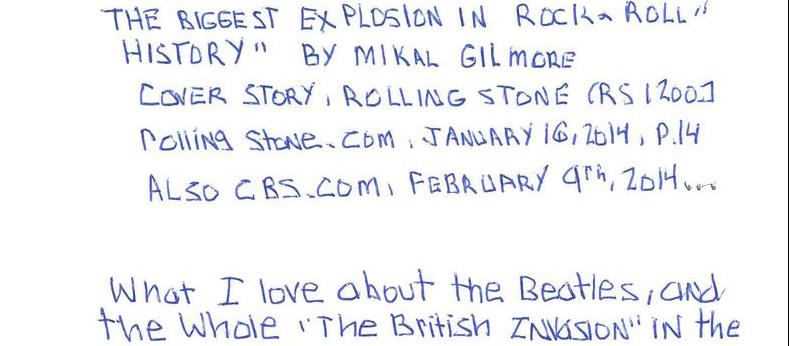 THE BIGGEST EXPLOSION IN ROCK & ROLL"
HISTORY" BY MIKAL GILMORE
COVER STORY, ROLLING STONE (RS 1200]
Rolling Stone.com, JANUARY 16, 2014, P.14
ALSO CBS.COM, FEBRUARY 9th, 2014...
What I love about the Beatles, and
the Whole "The British INVASION" IN the